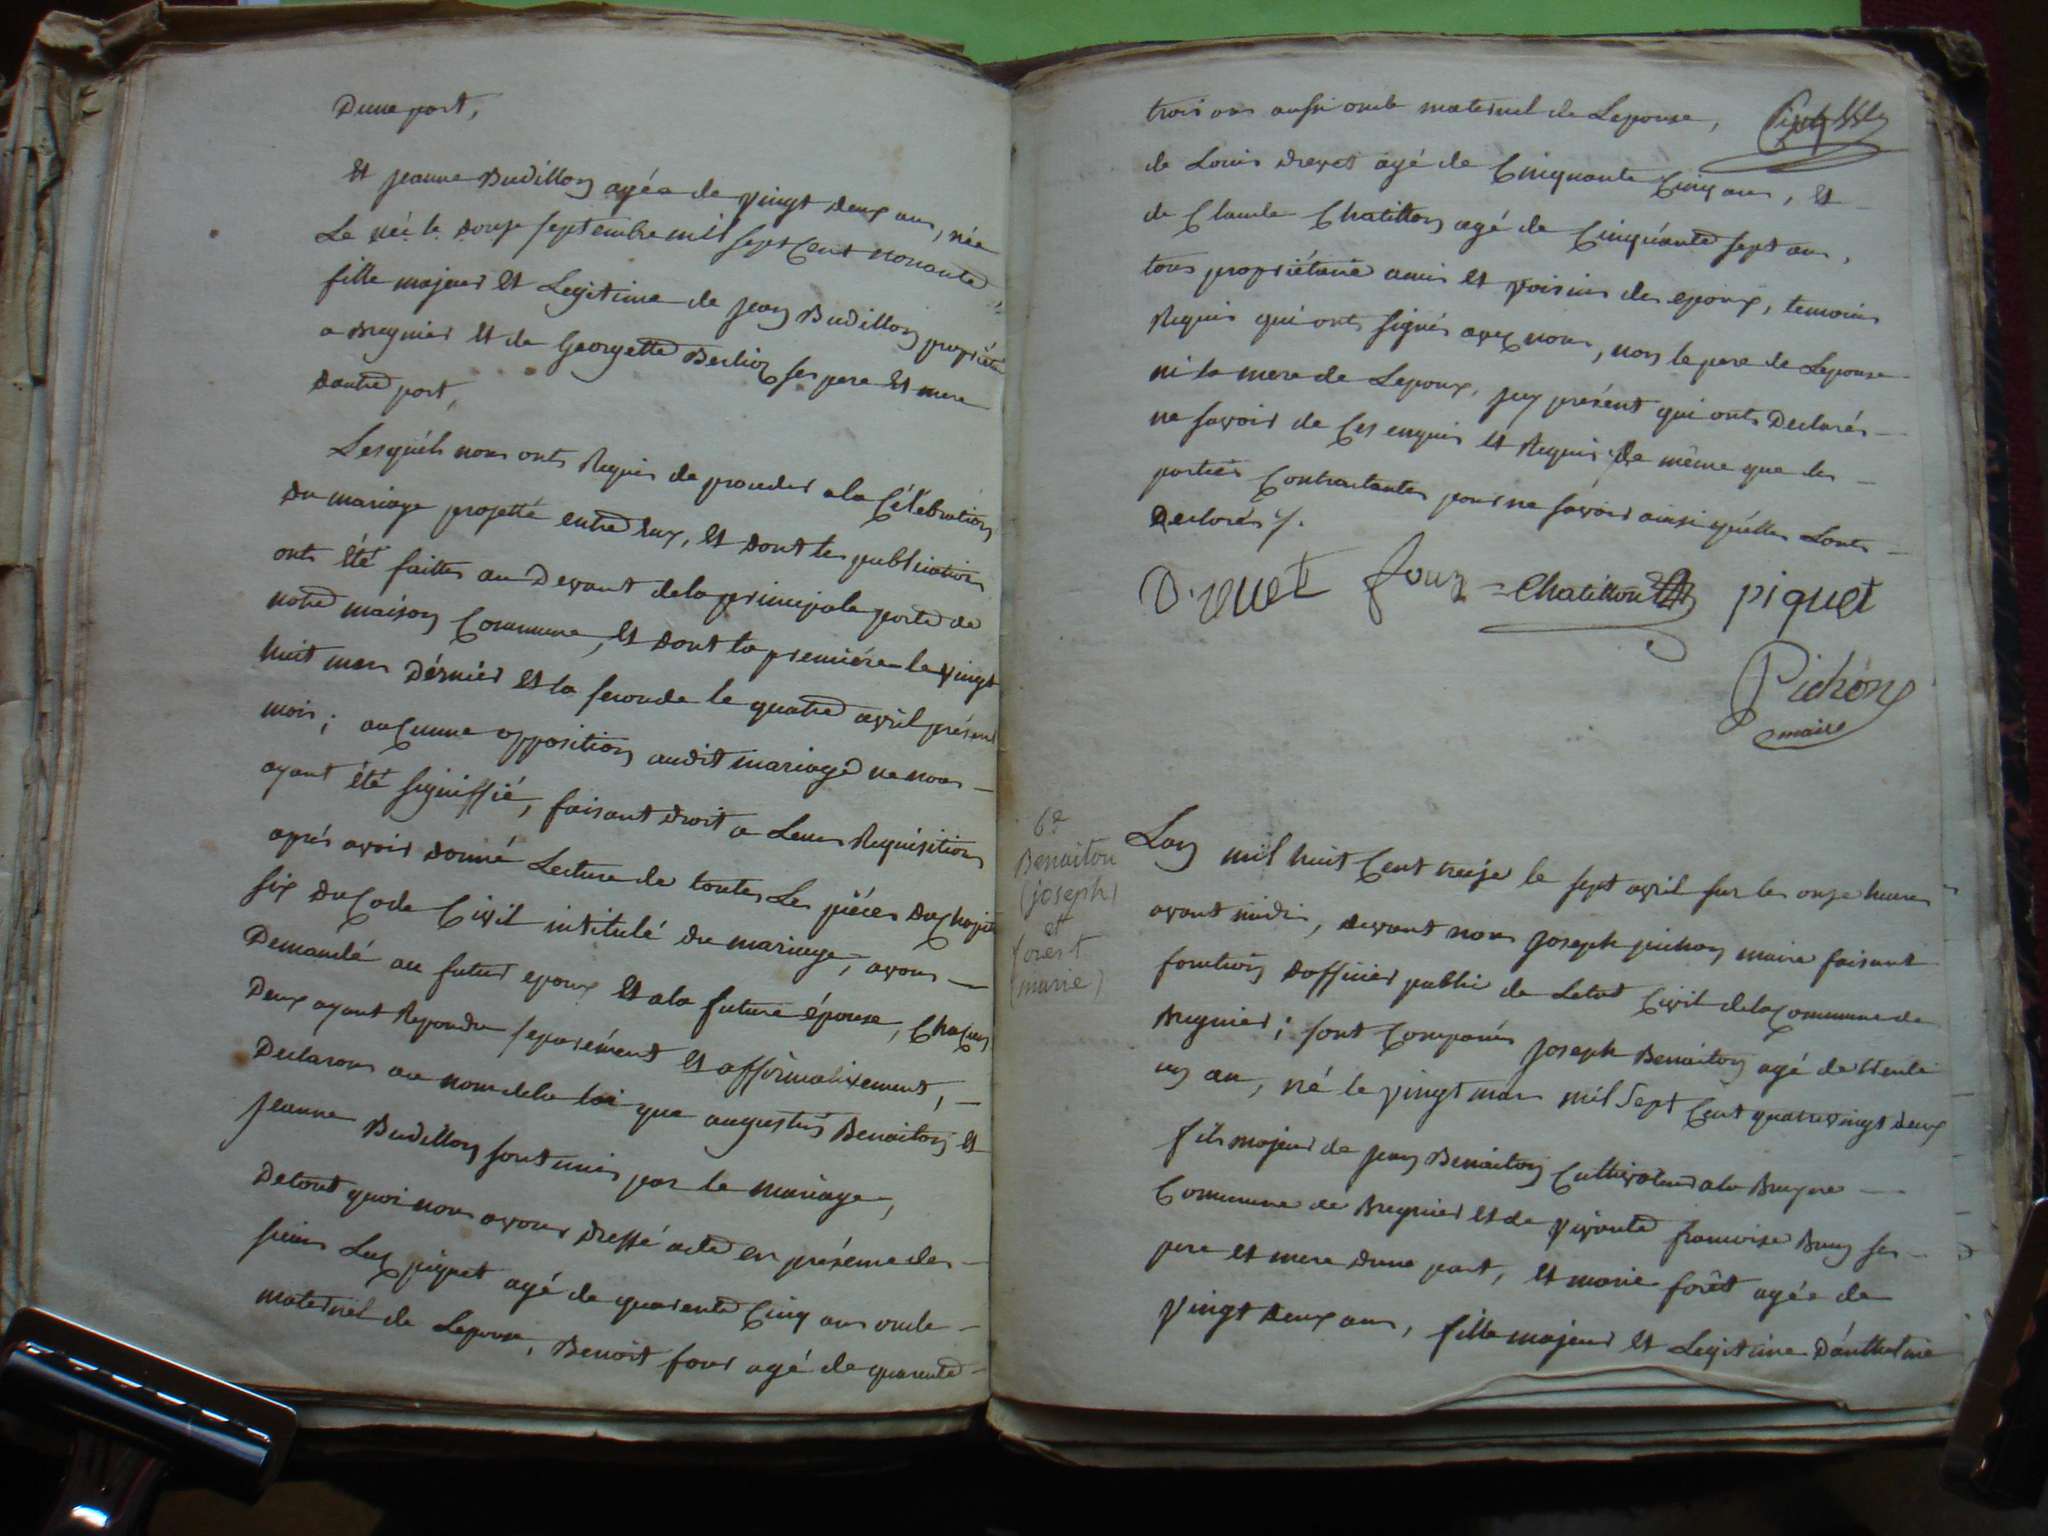 Dune part,
Et jeanne Budillon agée de vingt deux ans, née
Le née le douze septembre mil sept Cent nonante
fille majeur et Legitime de jean Budillon propriétai
a Bregnier et de Georgette Berlioz ses pere et mere
dautre part,
Lesquéls nous onts Requis de proceder a la Célébration
du mariage projetté entre eux, et dont les publications
onts été faittes au Devant de la principale porte de
notre maison Commune, et dont la premiére le vingt
huit mars dérnier et la seconde le quatre avril présent
mois; auCunne opposition audit mariage ne nous
ayant été signiffié, faisant droit a Leurs Réquisitions
aprés avoir donné Lecture de toutes Les piéces du chapit
six du Code Civil intitulé du mariage, avons
Demandé au futur epoux et a la future épouse, Chacun
Deux ayant Repondu separément et affirmativement,
Declarons au nom de la loi que augustin Benaiton et
jeanne Budillon sont unis par le mariage,
De tout quoi nous avons dressé acte en présence des
sieurs Luc piquet agé de quarente Cinq ans oncle
maternel de Lepouse, Benoit four agé de quarente
trois ans aussi oncle maternel de Lepouse,
de Louis drevet agé de Cinquante Cinq ans, et
de Claude Chatillon agé de Cinquante sept ans,
tous propriétaire amis et voisins des epoux, temoins
Requis qui onts signés avec nous, non le pere de Lepouse
ni la mere de Lepoux, ici présent qui onts Declarés
ne savoir de Ces enquis et Requis de même que les
parties Contractantes pour ne savoir ainsi quélles Lonts
Declarés /.
D. revet four Chatillon piquet
Pichon
maire
6e
Benaiton
(joseph)
et
forest
(marie)
Lan mil huit Cent treize le sept avril sur les onze heures
avant midi, devant nous Joseph pichon maire faisant
fonction dofficier public de Letat Civil de la Commune de
Bregnier; sont Comparus Joseph Benaiton agé de trente
un an, né le vingt mars mil Sept Cent quatrevingt deux
fils majeur de jean Benaiton Cultivateur a la Bruyere
Commune de Bregnier et de vivante francoise Brun ses
pere et mere dune part, et marie forêt agée de
vingt deux ans, fille majeur et Legitime dánthelme